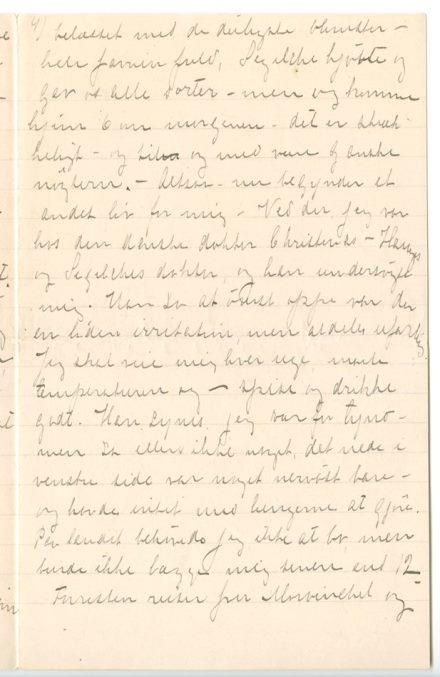 4) belæsset med de deiligste blomster –
hele favnen fuld, Segelche kjöbte og
gav os alle sorter – men og komme
hjem 6 om morgenen – det er skræk-
keligt – og og med være ganske
nögtern. – Altsaa – nu begynder et
andet liv for mig – Ved du, jeg var
hos den danske doktor Christmas – Hansys
og Segelches doktor, og han undersögte
mig. Han sa at överst oppe var der
en liden irritation, men aldeles ufarlig.
Jeg skal veie mig hver uge, maale
temperaturen og – spise og drikke
godt. Han synes, jeg var for tynd –
men sa ellers ikke noget, det nede i
venstre side var noget nervöst bare –
og havde intet med lungerne at gjöre.
Paa landet behövede jeg ikke at bo, men
burde ikke lægge mig senere end 12
reiser fru og